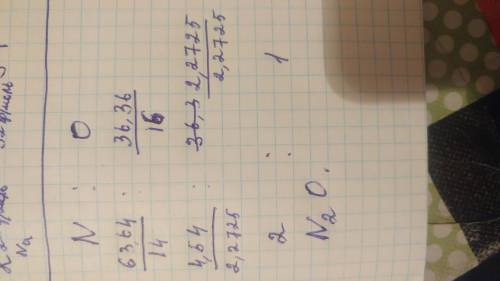 Na
N : O
63,64 : 36,36
14 16
4,54 : 2,2725
2,2725 2,2725
2 : 1
N2O.